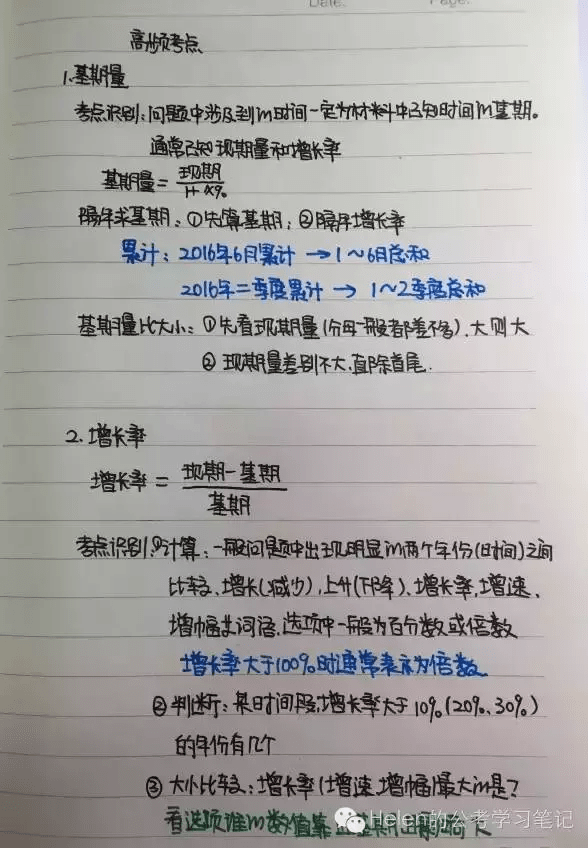 Date.
Page.
高频考点
1.基期量
考点识别:问题中涉及到的时间一定为材料中已知时间的基期。
通常已知现期量和增长率
基期量=现期/1+x%
隔年求基期:①先算基期;②隔年增长率
累计:2016年6月累计→1~6月总和
2016年二季度累计→1~2季度总和
基期量比大小:①先看现期量(分母一般都差不多),大则大
②现期量差别不大,直除首尾.
2.增长率
增长率=现期-基期/基期
考点识别:①计算:一般问题中出现明显的两个年份(时间)之间
比较,增长(减少),上升(下降)、增长率,增速、
增幅式词语,选项中一般为百分数或倍数
增长率大于100%时通常表示为倍数
②判断:某时间段,增长率大于10%(20%、30%)
的年份有几个
③大小比较:增长率(增速、增幅)最大的是?
看选项谁的数值
Helen的公考学习笔记